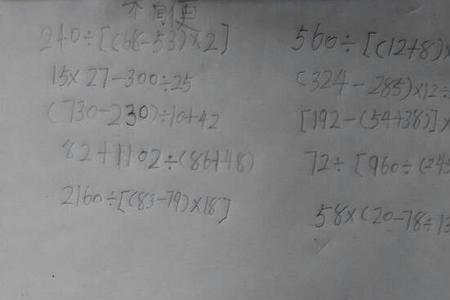 240÷[(68-53)×2]
15×27-300÷25
(730-230)÷10+42
82+1102÷(86+48)
2160÷[(83-79)×18]
560÷[(12+8)×
(324-285)×12÷
[192-(54+38)]×
72÷[960÷(24
58×(20-78÷13